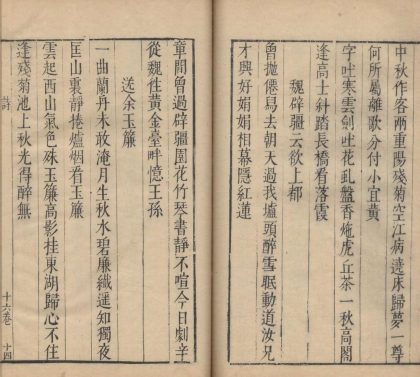 中秋作客兩重陽殘菊空江病遶床歸夢一尊
何所屬離歌分付小宜黃
字吐寒雲劍吐花亂盤香虎丘茶一秋高閣
逢高士斜踏長橋看落霞
魏辟疆云欲上都
曾拋僊易去朝天過我壚頭醉雪眠動道汝兄
才興好娟娟相幕隱紅蓮
童閒曾過辟疆園花竹琴書靜不喧今日劇辛
從魏徃黃金臺畔憶王孫
送余玉簾
一曲蘭丹未敢淹月生秋水碧廉纖遥知獨夜
匡山裏靜捲爐烟看玉簾
雲起西山氣色殊玉簾高影挂東湖歸心不住
逢殘菊池上秋光得醉無
詩
十六卷
十四